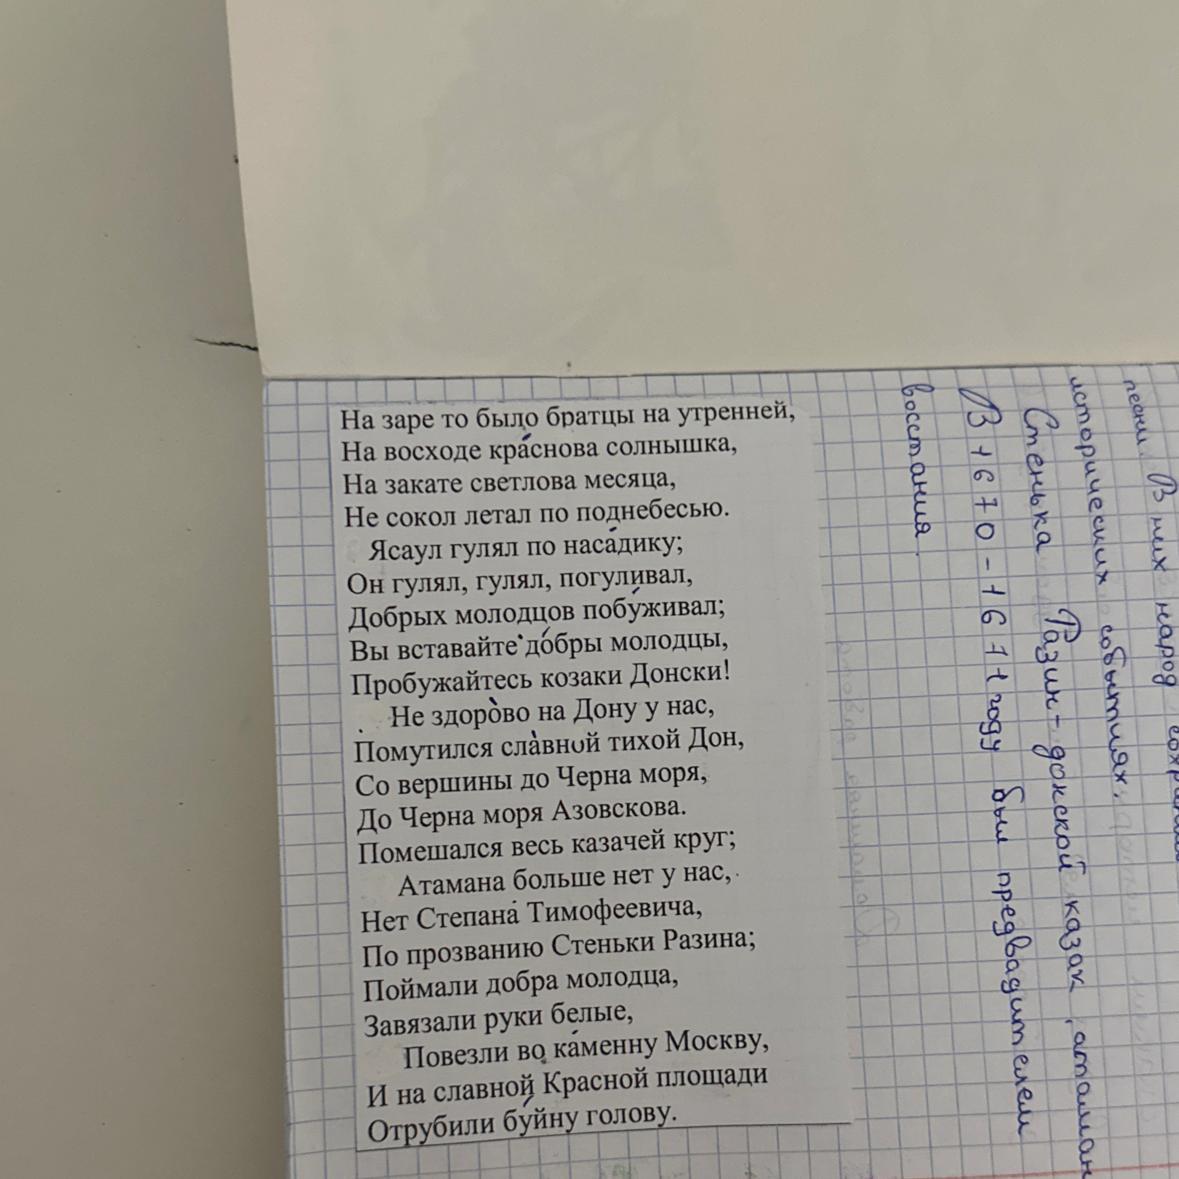 На заре то было братцы на утренней,
На восходе кра́снова солнышка,
На закате светлова месяца,
Не сокол летал по поднебесью.
Ясаул гулял по наса́дику;
Он гулял, гулял, погуливал,
Добрых молодцов побу́живал;
Вы вставайте до́бры молодцы,
Пробужайтесь козаки Донски!
Не здоро̀во на Дону у нас,
Помутился сла̀вной тихой Дон,
Со вершины до Черна моря,
До Черна моря Азовскова.
Помешался весь казачей круг;
Атамана больше нет у нас,
Нет Степана́ Тимофеевича,
По прозванию Стеньки Разина;
Поймали добра молодца,
Завязали руки белые,
Повезли во ка́менну Москву,
И на славной Красной площади
Отрубили бу́йну голову.
песни. В них народ
исторических событиях.
Стенька Разин - донской казак, атаман
В 1670-1671 году был предвадителем
восстания.